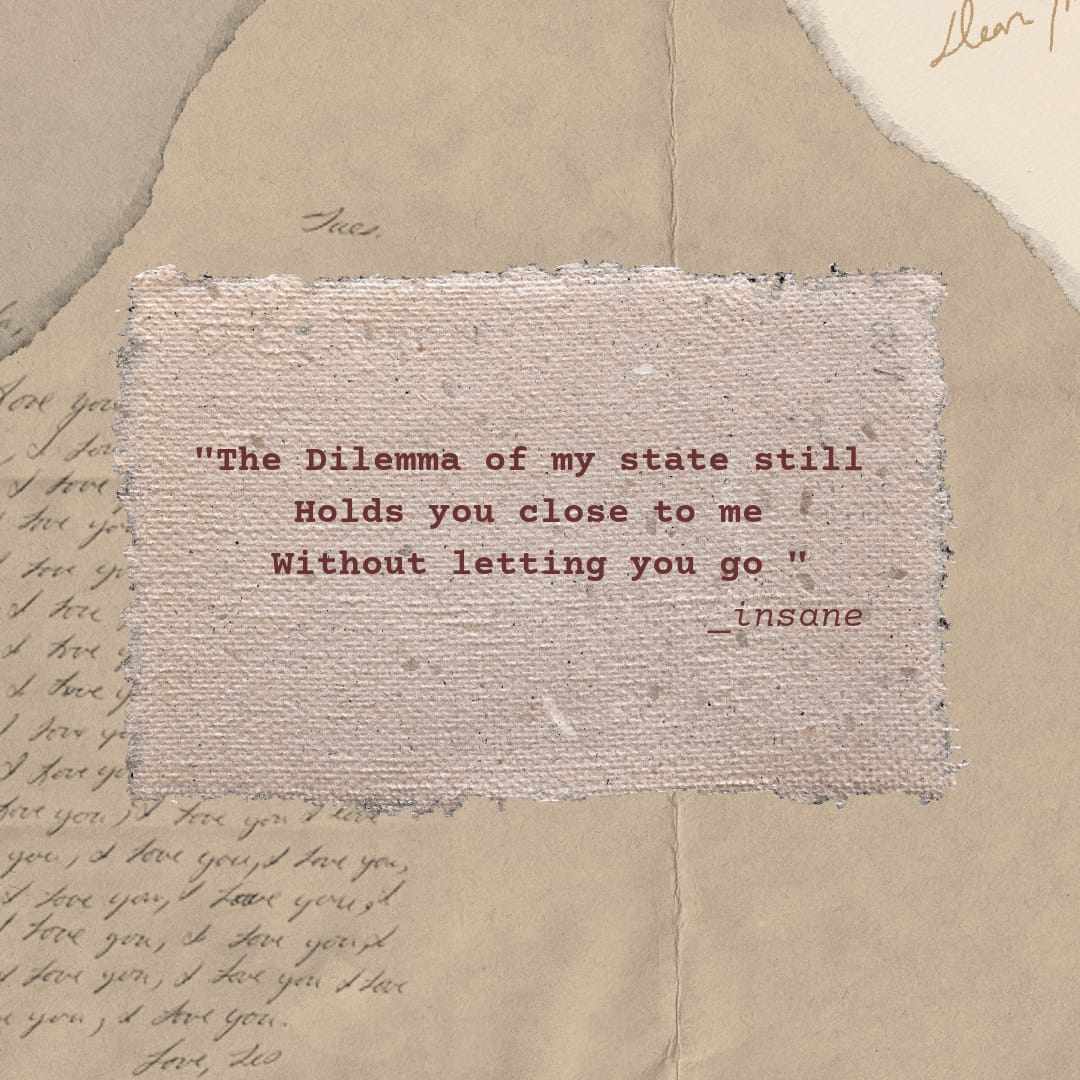 Dear
Tues.
love you
I love
I love
I love you
I love you
I love
I love
I love y
I love you
I love you
love you, I love you I love
you, I love you, I love you,
I love you, I love you, I
I love you, I love you, I
I love you, I love you I love
you, I love you.
Love,
"The Dilemma of my state still
Holds you close to me
Without letting you go "
_insane